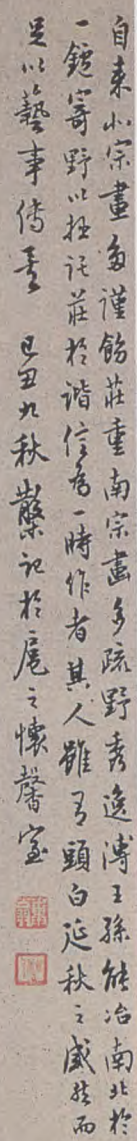 自来北宗畫多謹飭莊重南宗畫多疏野秀逸溥王孫能冶南北於
一鑪寄野以拙託莊於諧信為一時作者其人雖有頭白延秋之感然而
足以藝事傳矣 己丑九秋 記於扈之懷馨室